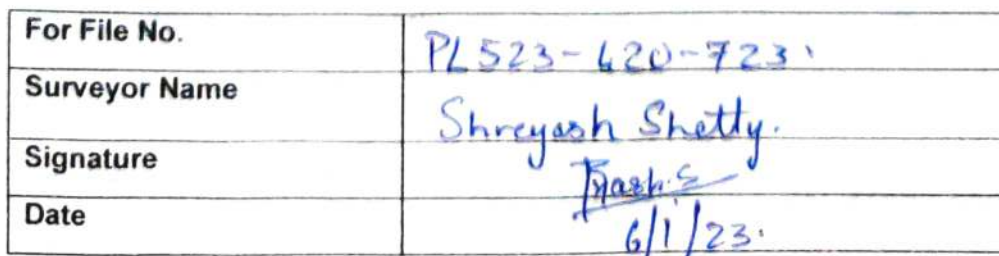 For File No. PL523-620-723.
Surveyor Name Shreyash Shetty.
Signature
Date 6/1/23.